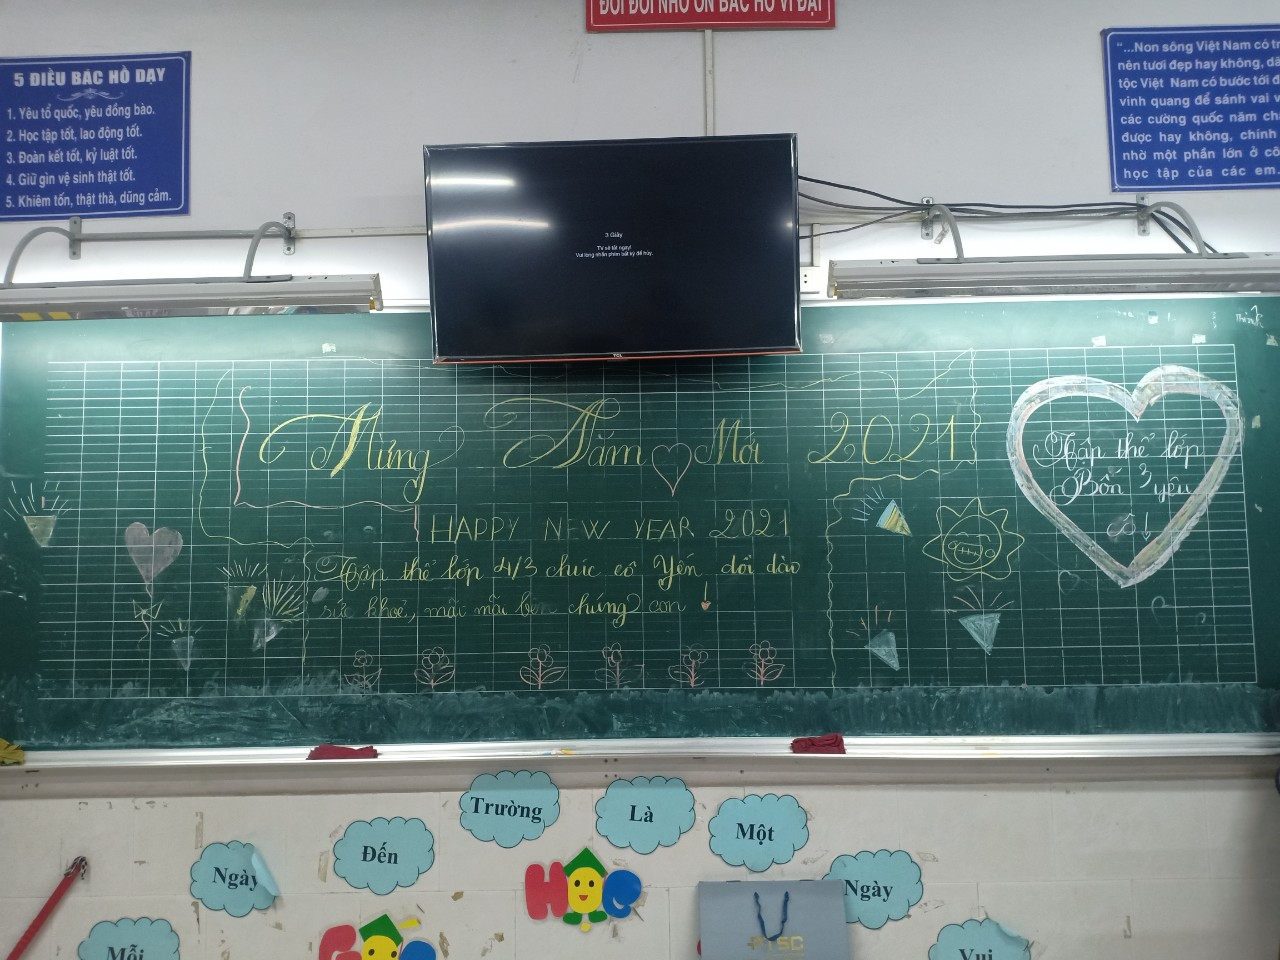 ĐỜI ĐỜI NHỚ ƠN BÁC HỒ VĨ ĐẠI
5 ĐIỀU BÁC HỒ DẠY
1. Yêu tổ quốc, yêu đồng bào.
2. Học tập tốt, lao động tốt.
3. Đoàn kết tốt, kỷ luật tốt.
4. Giữ gìn vệ sinh thật tốt.
5. Khiêm tốn, thật thà, dũng cảm.
"...Non sông Việt Nam có tr
nên tươi đẹp hay không, dâ
tộc Việt Nam có bước tới đ
vinh quang để sánh vai v
các cường quốc năm ch
được hay không, chính
nhờ một phần lớn ở cô
học tập của các em.
3 Giây
TV sẽ tắt ngay!
Vui lòng nhấn phím bất kỳ để hủy.
TCL
Mừng Năm Mới 2021
HAPPY NEW YEAR 2021
Tập thể lớp 4/3 chúc cô Yến dồi dào
sức khoẻ, mãi mãi bên chúng con
Tập thể lớp
Bốn 3 yêu
cô
Mỗi Ngày Đến Trường Là Một Ngày Vui
HỌC
PTSC